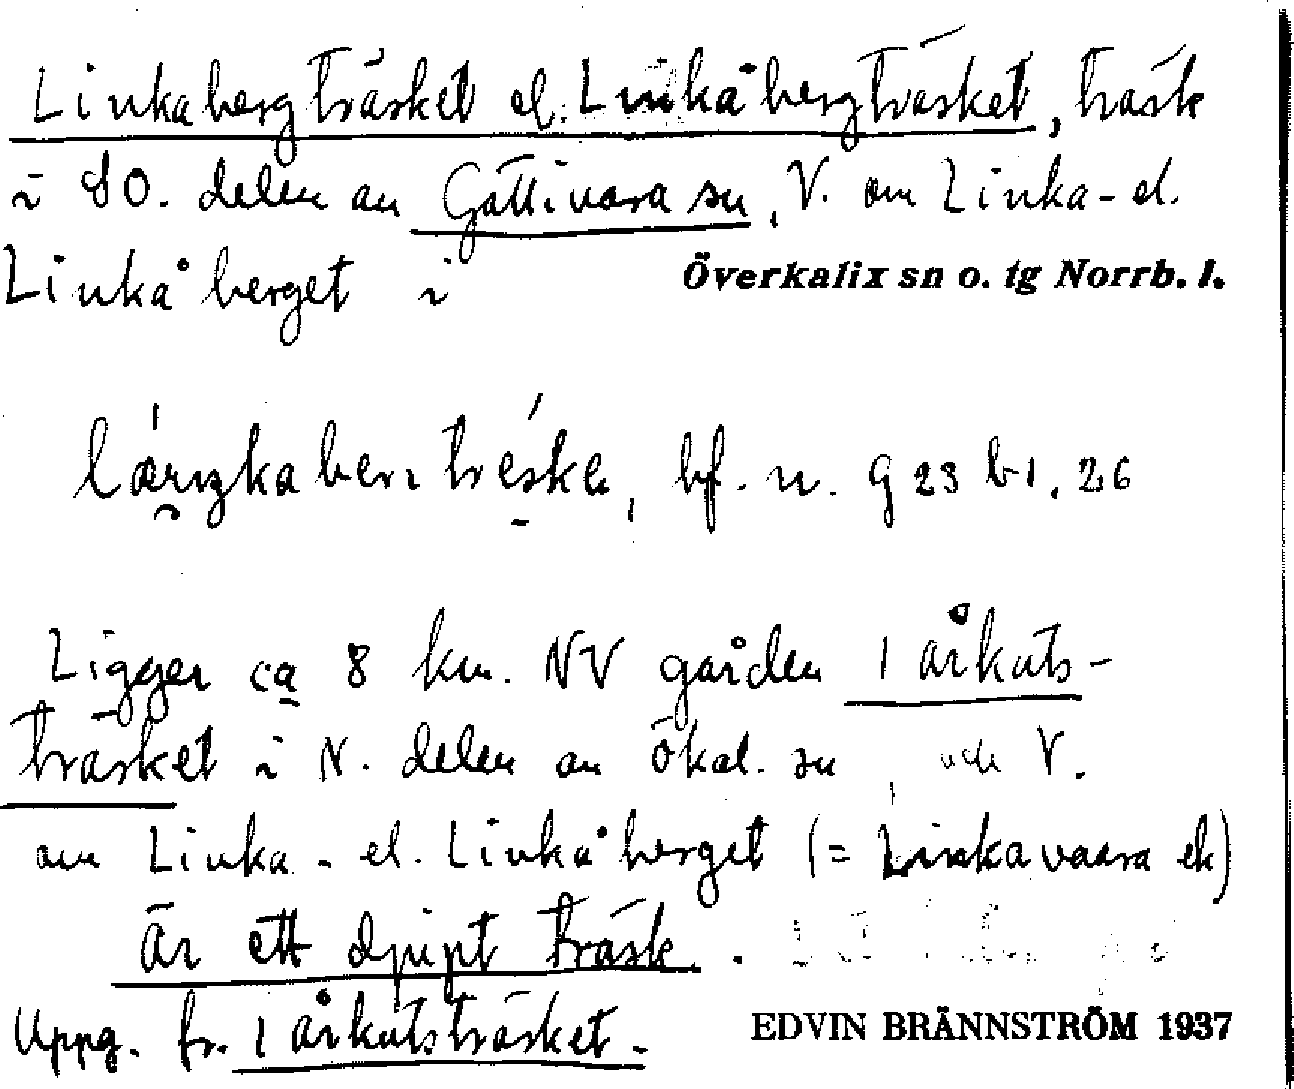 Linkabergträsket el. Linkåbergträsket, träsk
i SO. delen av Gällivara sn, V. om Linka- el.
Linkåberget i Överkalix sn o. tg Norrb. l.
bf. n. G 23 b 1. 26
Ligger ca 8 km. NV gården Iårkuts-
träsket i N. delen av Ökal. sn, och V.
om Linka- el. Linkåberget (= Linkavaara ek)
Är ett djupt träsk.
Uppg. fr. Iårkutsträsket. EDVIN BRÄNNSTRÖM 1937